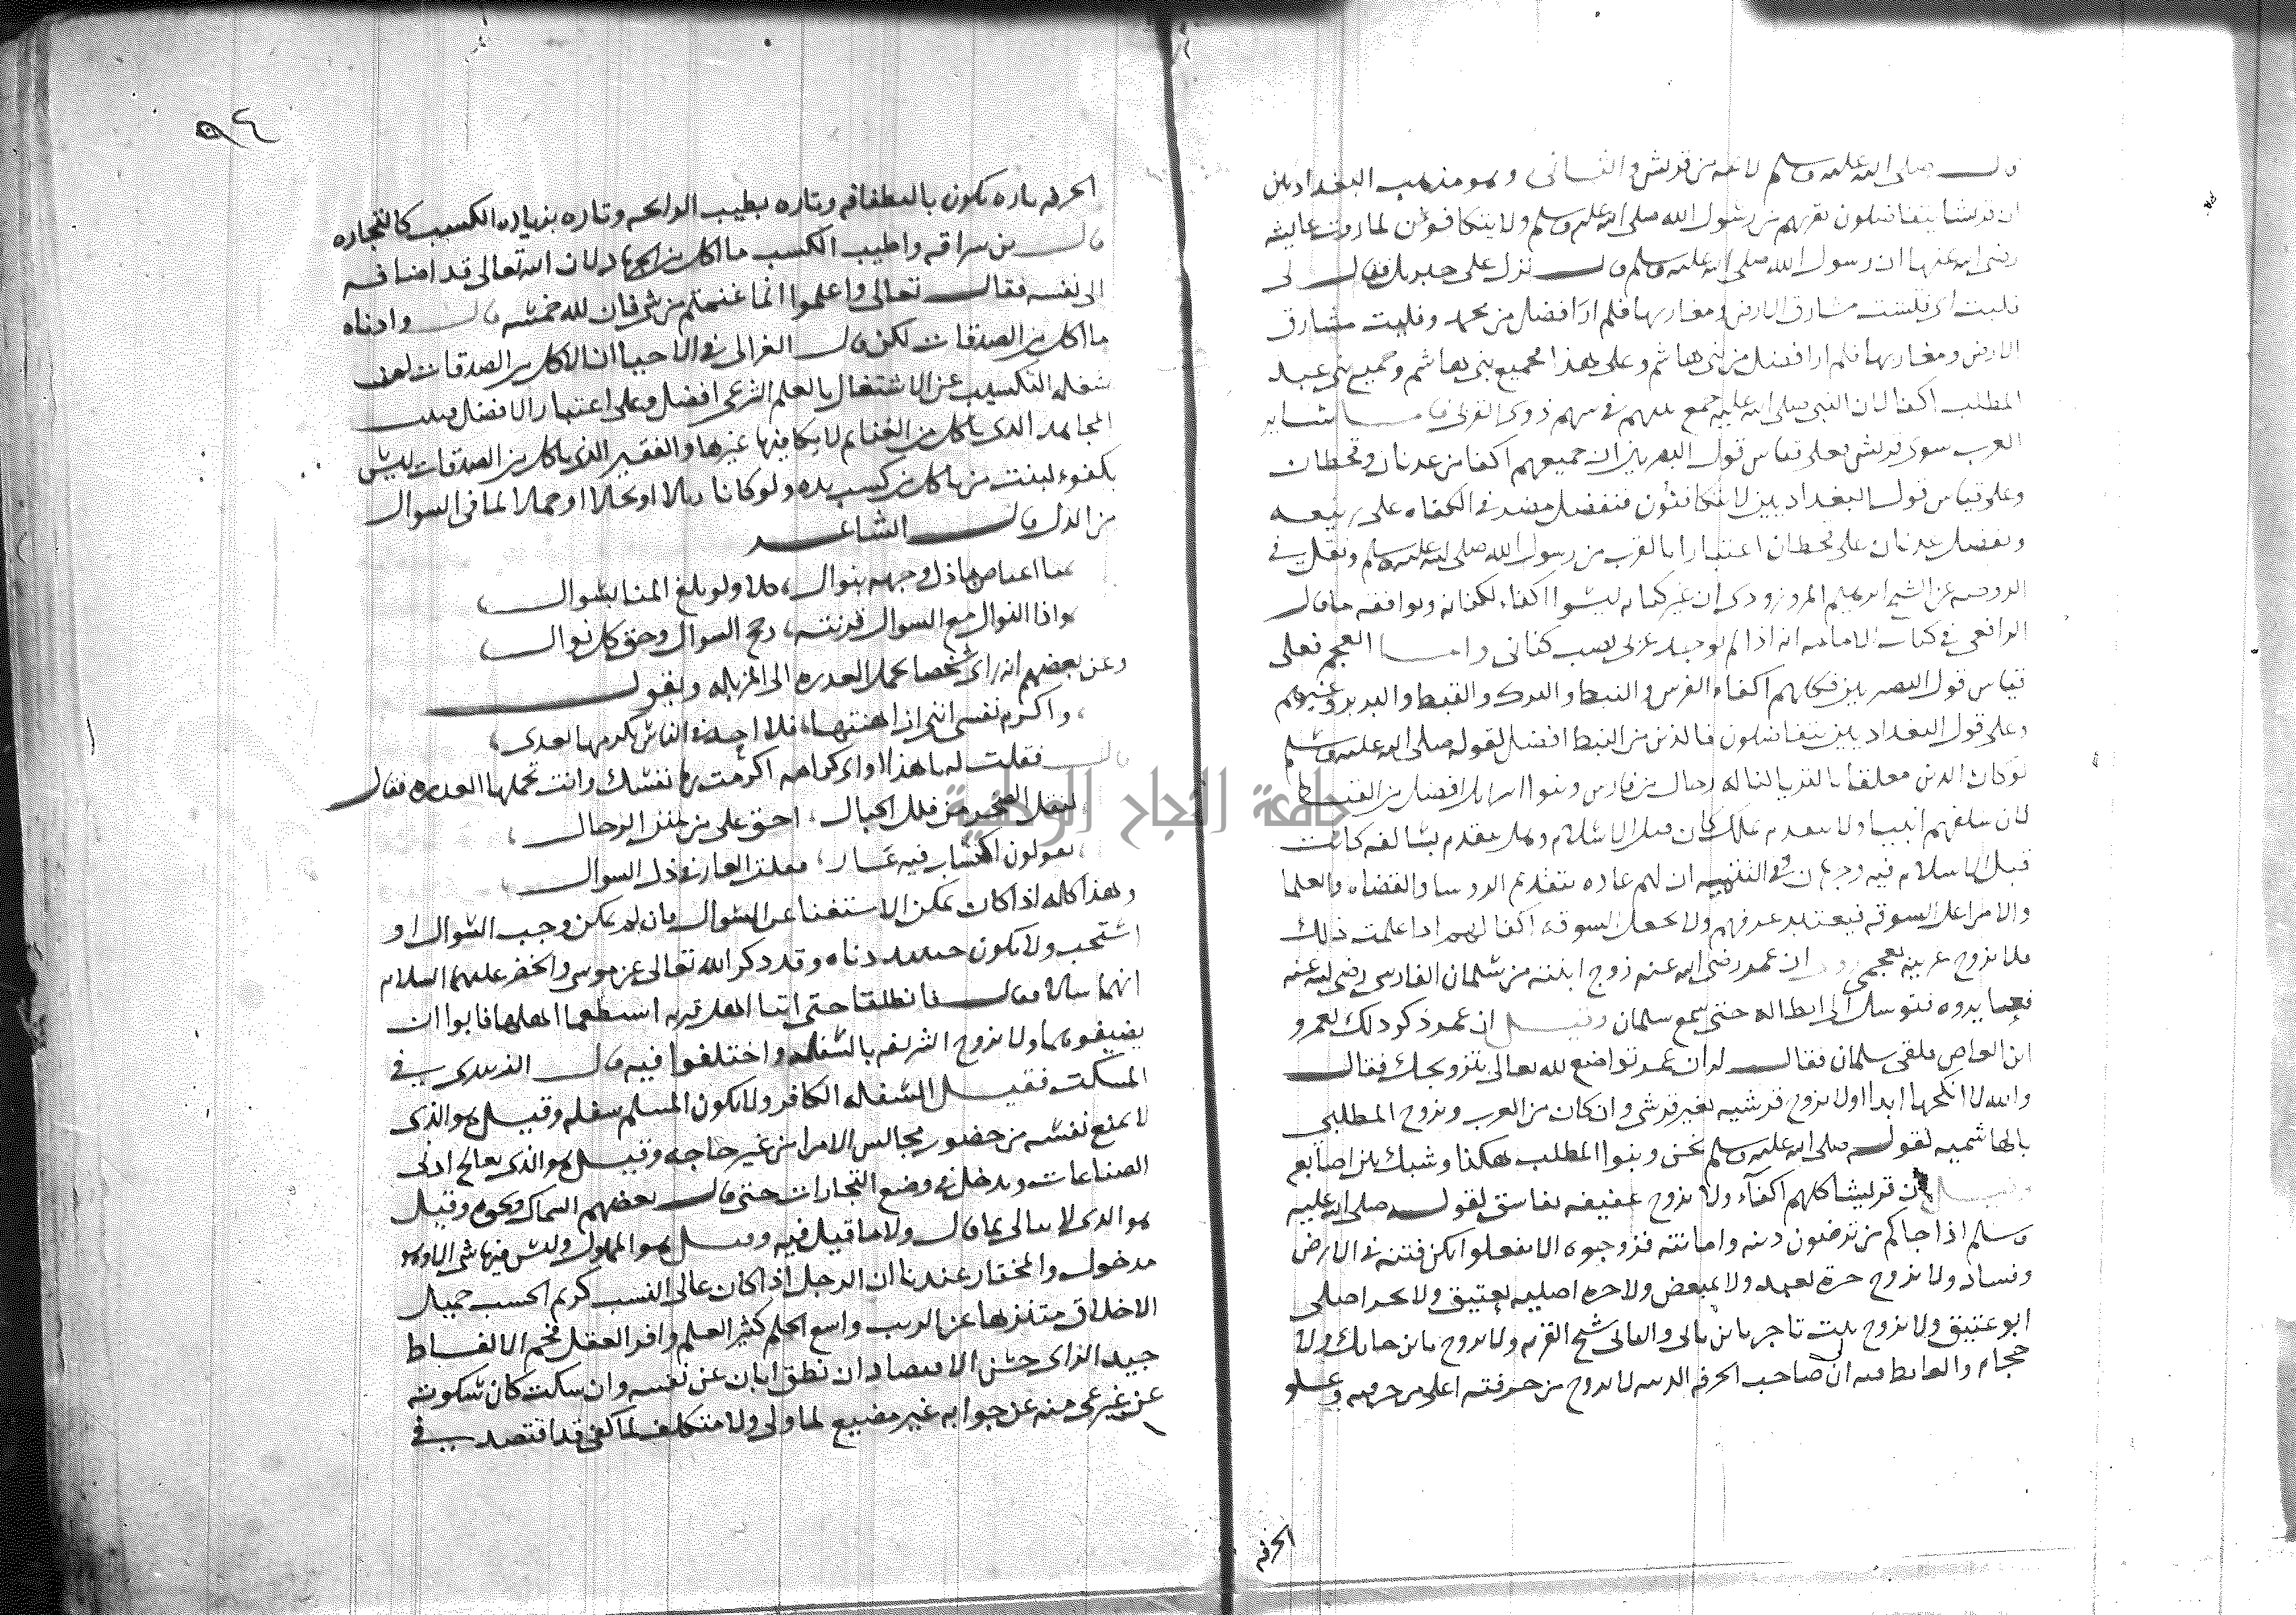 صلى الله عليه وسلم الائمة من قريش والثاني وهو مذهب البغداديين
ان قريشا يتفاضلون بقربهم من رسول الله صلى الله عليه وسلم ولا يتكافون لما روت عايشه
رضي الله عنها ان رسول الله صلى الله عليه وسلم قال نزل علي جبريل فقال لي
قلبت اي فتشت مشارق الارض ومغاربها فلم ار افضل من محمد وقلبت مشارق
الارض ومغاربها فلم ار افضل من بني هاشم وعلى هذا فجميع بني هاشم وجميع بني عبد
المطلب اكفا لان النبي صلى الله عليه جمع بينهم في سهم ذوي القربى فاما ساير
العرب سوى قريش فعلى قياس قول البصريين ان جميعهم اكفا من عدنان وقحطان
وعلى قياس قول البغداديين لا يتكافئون فتفضل مضر في الكفاه على ربيعه
وتفضل عدنان على قحطان اعتبارا بالقرب من رسول الله صلى الله عليه وسلم ونقل في
الروضه عن الشيخ ابرهيم المروزودي ان غير كنانه ليسوا اكفاء لكنانه ويوافقه ما قال
الرافعي في كتاب الامامه انه اذا لم يوجد عربي نصب كناني واما العجم فعلى
قياس قول البصريين فكلهم اكفاء الفرس والنبط والترك والقبط والبربر وغيرهم
وعلى قول البغداديين يتفاضلون فالفرس من النبط افضل لقوله صلى الله عليه وسلم
لو كان الدين معلقا بالثريا لناله رجال من فارس وبنوا اسرايل افضل من القبط
لان سلفهم انبيا ولا يتقدم بملك كان قبل الاسلام وهل يتقدم بسالفه كانت
قبل الاسلام فيه وجهان في التتمه ان لهم عاده بتقديم الروسا والقضاه والعلما
والامرا على السوقه فيعتبر عرفهم ولا يجعل السوقه اكفا لهم اذا علمت ذلك
فلا يزوج عربيه بعجمي ان عمر رضي الله عنه زوج ابنته من سلمان الفارسي رضي الله عنه
الى ابطاله حتى سمع سلمان وقيل ان عمر ذكر ذلك لعمرو
ابن العاص فلقي سلمان فقال له ان عمر تواضع لله تعالى بتزويجك فقال
والله لا انكحها ابدا ولا يزوج قرشيه بغير قرشي وان كان من العرب ويزوج المطلبي
بالهاشميه لقوله صلى الله عليه وسلم نحن وبنوا المطلب هكذا وشبك بين اصابعه
وقيل ان قريشا كلهم اكفآء ولا يزوج عفيفه بفاسق لقوله صلى الله عليه
وسلم اذا جاكم من ترضون دينه وامانته فزوجوه الا تفعلوا تكن فتنه في الارض
وفساد ولا يزوج حرة بعبد ولا بمبعض ولا حره اصليه بعتيق ولا بحر اصلي
ابوه عتيق ولا يزوج بنت تاجر بابن شيخ القريه ولا يزوج بابن حايك ولا
حجام والضابط فيه ان صاحب الحرفه الدنيه لا يزوج من حرفته اعلى من حرفته وعلو
الحرفه
٩٤
الحرفه تاره تكون بالنظافه وتاره بطيب الرايحه وتاره بزياده الكسب كالتجاره
قال بن سراقه واطيب الكسب ما اكل من الجهاد لان الله تعالى قد اضافه
الى نفسه فقال تعالى واعلموا انما غنمتم من شي فان لله خمسه قال وادناه
ما اكل من الصدقات لكن قال الغزالي في الاحيا ان الاكل من الصدقات لمن
شغله التكسب عن الاشتغال بالعلم الشرعي افضل وعلى اعتبار الافضل فبنت
المجاهد الذي ياكل من الغنايم لا يكافيها غيرها والفقير الذي ياكل من الصدقات ليس
بكفوء لبنت من ياكل من كسب يده ولو كانا دلالا او نخالا او حمالا لما في السوال
من الذل قال الشاعر
ما اعتاض باذل وجهه بنوال، بدلا ولو بلغ المنا بسوال
واذا النوال مع السوال قرنته، رجح السوال وخف كل نوال
وعن بعضهم انه راى شخصا يحمل العذره الى المزبله ويقول
، واكرم نفسي انني ان اهنتها، فلا احد في الناس يكرمها بعدي،
قال فقلت له يا هذا اواي كرامه اكرمت بها نفسك وانت تحملها العذره فقال
لنقل الصخر من قلل الجبال، احق علي من منن الرجال،
، يقولون اكتساب فيه عار، فقلت العار في ذل السوال،
وهذا كله اذا كان يمكن الاستغنا عن السوال فان لم يمكن وجب السوال او
استحب ولا يكون دناه وقد ذكر الله تعالى عن موسى والخضر عليهما السلام
انهما سالا فقال فانطلقا حتى اتيا اهل قريه استطعما اهلها فابوا ان
يضيفوهما ولا يزوج الشريفه بالسفله واختلفوا فيه قال الزبيدي في
المسكت فقيل السفله الكافر ولا يكون المسلم سفله وقيل هو الذي
لا يمنع نفسه من حضور مجالس الامرا من غير حاجه وقيل هو الذي يعالج ادنى
الصناعات ويدخل في وضع التجارات حتى قال بعضهم السماك ونحوه وقيل
هو الذي لا يبالي بما قال ولا ما قيل فيه وقيل هو المهلول وليس فيها شي الا وهو
مدخول والمختار عندنا ان الرجل اذا كان عالي النسب كريم الحسب جميل
الاخلاق متنزها عن الريب واسع الحلم كثير العلم وافر العقل فخم الالفاظ
جيد الراي حسن الاقتصاد ان نطق ابان عن نفسه وان سكت كان سكوته
عن غير عي منه عن جوابه غير مضيع لما ولي ولا متكلف لما كفي قد اقتصد في
جامعة النجاح الوطنية